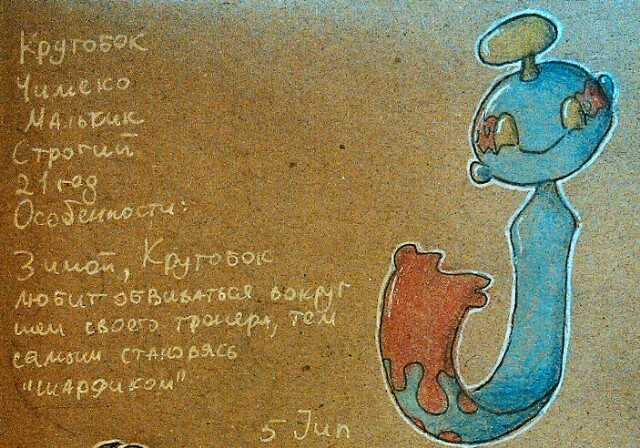 Кругобок
Чимеко
Мальчик
Строгий
21 год
Особенности:
Зимой, Кругобок
любит обвиваться вокруг
шеи своего тренера, тем
самым становясь
"шарфиком"
5 Jun